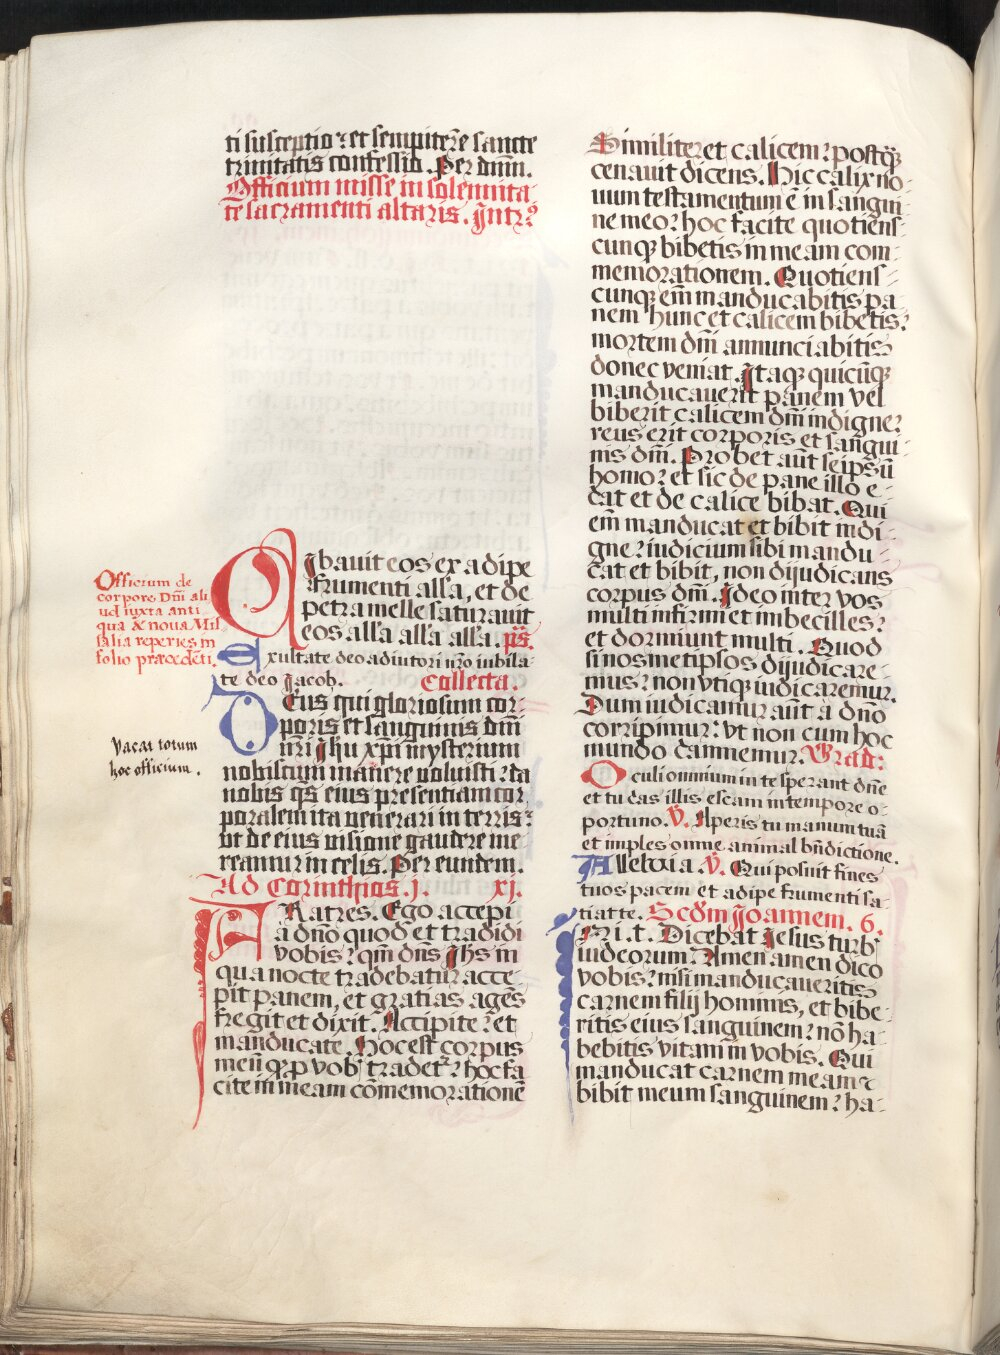 ti susceptio ⁊ et sempiterne sancte
trinitatis confessio. Per dnm.
Officium misse in solemnita
te sacramenti altaris. Intr?
Cibavit eos ex adipe
frumenti alla, et de
petra melle saturavit
eos alla alla alla. ps.
Exultate deo adiutori nro iubila-
te deo Jacob. Collecta.
Deus qui gloriosum cor-
poris et sanguinis dni
nri Jhu xpi mysterium
nobiscum manere voluisti: da
nobis qs eius presentiam cor-
poralem ita venerari in terris:
ut de eius visione gaudere me-
reamur in celis. Per eundem.
Ad Corinthios. j. xj.
FRatres. Ego accepi
a dno quod et tradidi
vobis: qm dns Jhs in
qua nocte tradebatur acce-
pit panem, et gratias agẽs
fregit et dixit. Accipite: et
manducate. Hoc est corpus
meũ q p vob tradet: hoc fa
cite in meam cõmemorationẽ
Officium de
corpore Dñi ali
ud iuxta anti
qua & noua Mis
salia reperies in
folio præcedẽti.
Vacat totum
hoc officium.
Similiter et calicem: postq̃
cenavit dicens. Hic calix no-
vum testamentum ẽ in sangui-
ne meo: hoc facite quotiens-
cunq bibetis in meam com-
memorationem. Quotiens-
cunq em̃ manducabitis pa-
nem hunc et calicem bibetis:
mortem dñi annunciabitis
donec veniat. Itaq quicũq
manducaverit panem vel
biberit calicem dñi indigne:
reus erit corporis et sangui-
nis dñi. Probet aũt seipsũ
homo: et sic de pane illo e-
dat et de calice bibat. Qui
em̃ manducat et bibit indi-
gne: iudicium sibi mandu-
cat et bibit, non dijudicans
corpus dñi. Ideo inter vos
multi infirmi et imbecilles:
et dormiunt multi. Quod
si nosmetipsos dijudicare-
mus: non vtiq iudicaremur.
Dum iudicamur aũt a dño
corripimur: vt non cum hoc
mundo damnemur. Grad:
Oculi omnium in te sperant dñe
et tu das illis escam in tempore o-
portuno. V. Aperis tu manum tuã
et imples omne animal bñdictione.
Alleluia. V. Qui posuit fines
tuos pacem et adipe frumenti sa-
tiat te. Scdm Joannem. 6.
IN i. t. Dicebat Jesus turb
iudeorum: Amen amen dico
vobis: nisi manducaveritis
carnem filij hominis, et bibe-
ritis eius sanguinem: nõ ha-
bebitis vitam in vobis. Qui
manducat carnem meam ⁊
bibit meum sanguinem: ha-